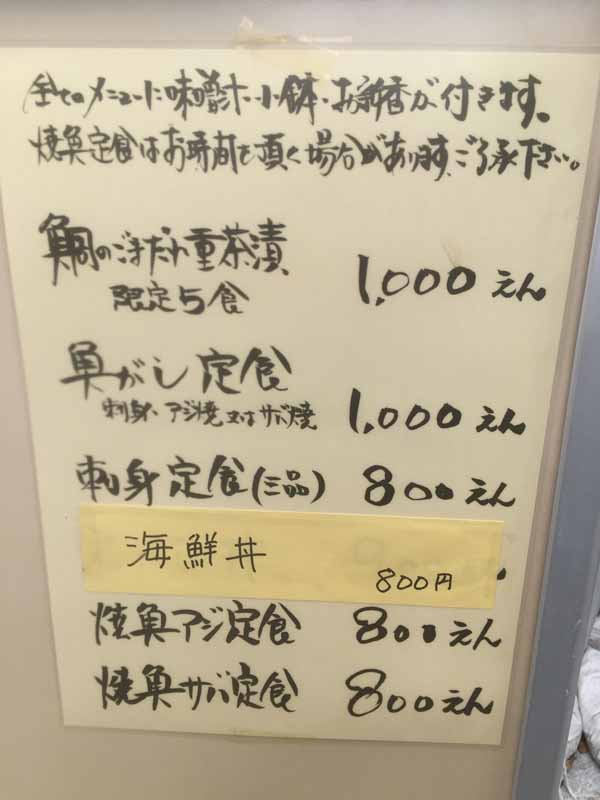 全てのメニューに味噌汁・小鉢・お新香が付きます。
焼魚定食はお時間を頂く場合があります。ご了承下さい。
鯛のごまだれ重茶漬 1,000えん
限定5食
魚がし定食
刺身、アジ焼又はサバ焼 1,000えん
刺身定食(三品) 800えん
海鮮丼 800円
焼魚アジ定食 800えん
焼魚サバ定食 800えん